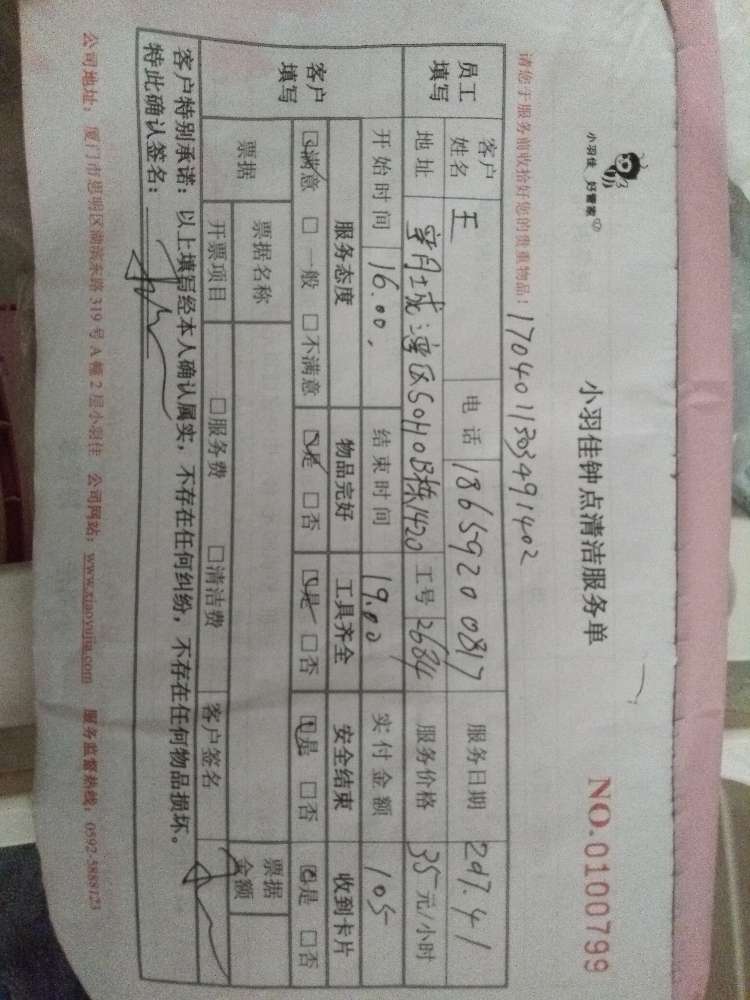 小羽佳 好管家
小羽佳钟点清洁服务单
NO.0100799
请您于服务前收拾好您的贵重物品!
1704011303491402
员工填写
客户姓名 王 电话 18659200817 服务日期
地址 SOHOB栋1420 工号 2684 服务价格 35元/小时
开始时间 16.00. 结束时间 19.00 实付金额 105
客户填写
服务态度 物品完好 工具齐全 安全结束 收到卡片
☑满意 □一般 □不满意 ☑是 □否 ☑是 □否 ☑是 □否 ☑是 □否
票据 票据名称 票据金额
开票项目 □服务费 □清洁费 客户签名
客户特别承诺:以上填写经本人确认属实,不存在任何纠纷,不存在任何物品损坏。
特此确认签名:
公司地址:厦门市思明区湖滨东路319号A幢2层小羽佳 公司网站:www.xiaoyujia.com 服务监督热线:0592-5888123